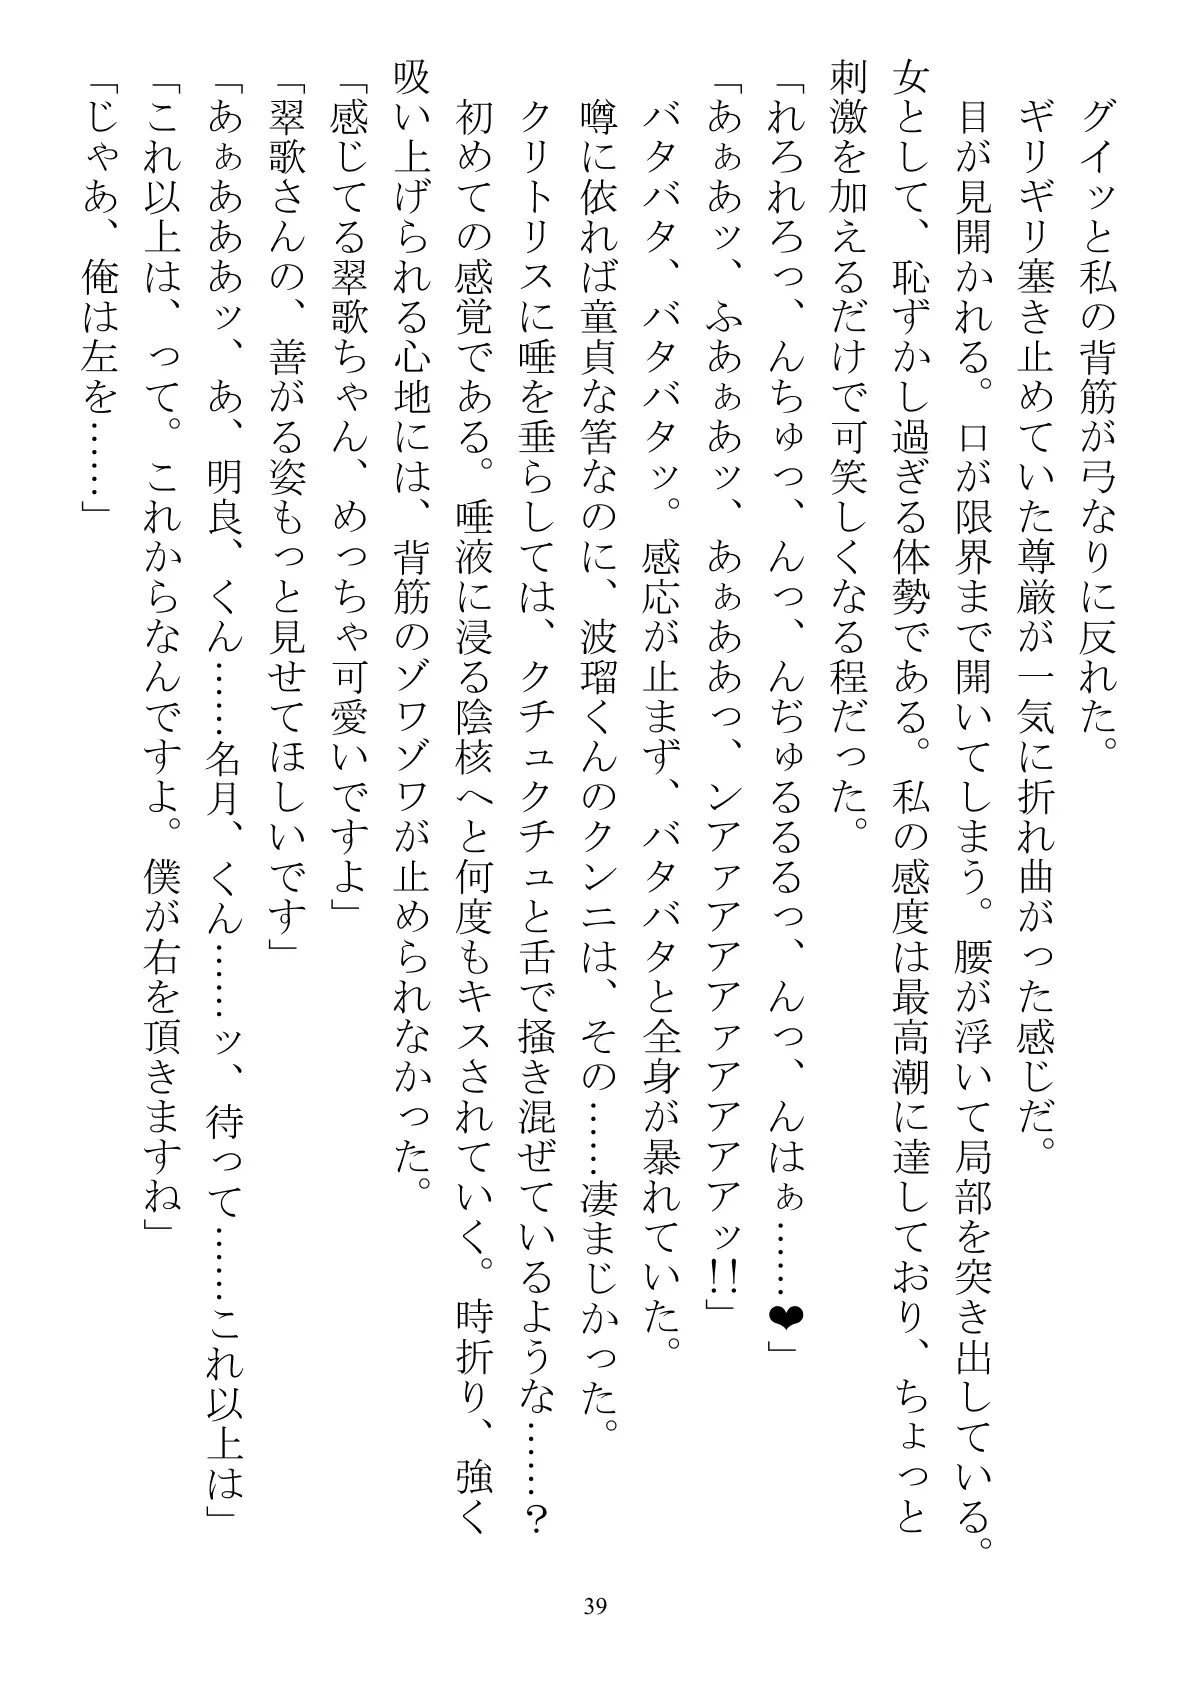 グイッと私の背筋が弓なりに反れた。
ギリギリ塞き止めていた尊厳が一気に折れ曲がった感じだ。
目が見開かれる。口が限界まで開いてしまう。腰が浮いて局部を突き出している。
女として、恥ずかし過ぎる体勢である。私の感度は最高潮に達しており、ちょっと
刺激を加えるだけで可笑しくなる程だった。
「れろれろっ、んちゅっ、んっ、んぢゅるるるっ、んっ、んはぁ……❤」
「あぁあッ、ふあぁあッ、あぁああっ、ンアァアアアァアアアアッ!!」
バタバタ、バタバタッ。感応が止まず、バタバタと全身が暴れていた。
噂に依れば童貞な筈なのに、波瑠くんのクンニは、その……凄まじかった。
クリトリスに唾を垂らしては、クチュクチュと舌で掻き混ぜているような……?
初めての感覚である。唾液に浸る陰核へと何度もキスされていく。時折り、強く
吸い上げられる心地には、背筋のゾワゾワが止められなかった。
「感じてる翠歌ちゃん、めっちゃ可愛いですよ」
「翠歌さんの、善がる姿もっと見せてほしいです」
「あぁあああッ、あ、明良、くん……名月、くん……ッ、待って……これ以上は」
「これ以上は、って。これからなんですよ。僕が右を頂きますね」
「じゃあ、俺は左を……」
39